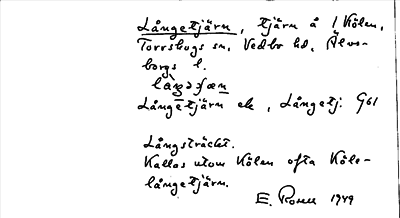 Långetjärn, tjärn å 1 Kölen,
Torrskogs sn. Vedbo hd, Älvs-
borgs l.
Långetjärn ek, Långetj. G61
Långsträckt.
Kallas utom Kölen ofta Köle-
långetjärn.
E. Rosell 1949